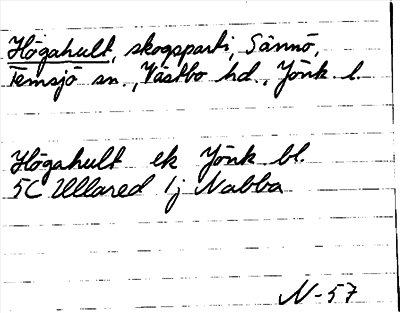 Högahult, skogsparti, Sännö,
Femsjö sn., Västbo hd., Jönk. l.
Högahult ek Jönk bl.
5C Ullared 1j Nabba
N-57